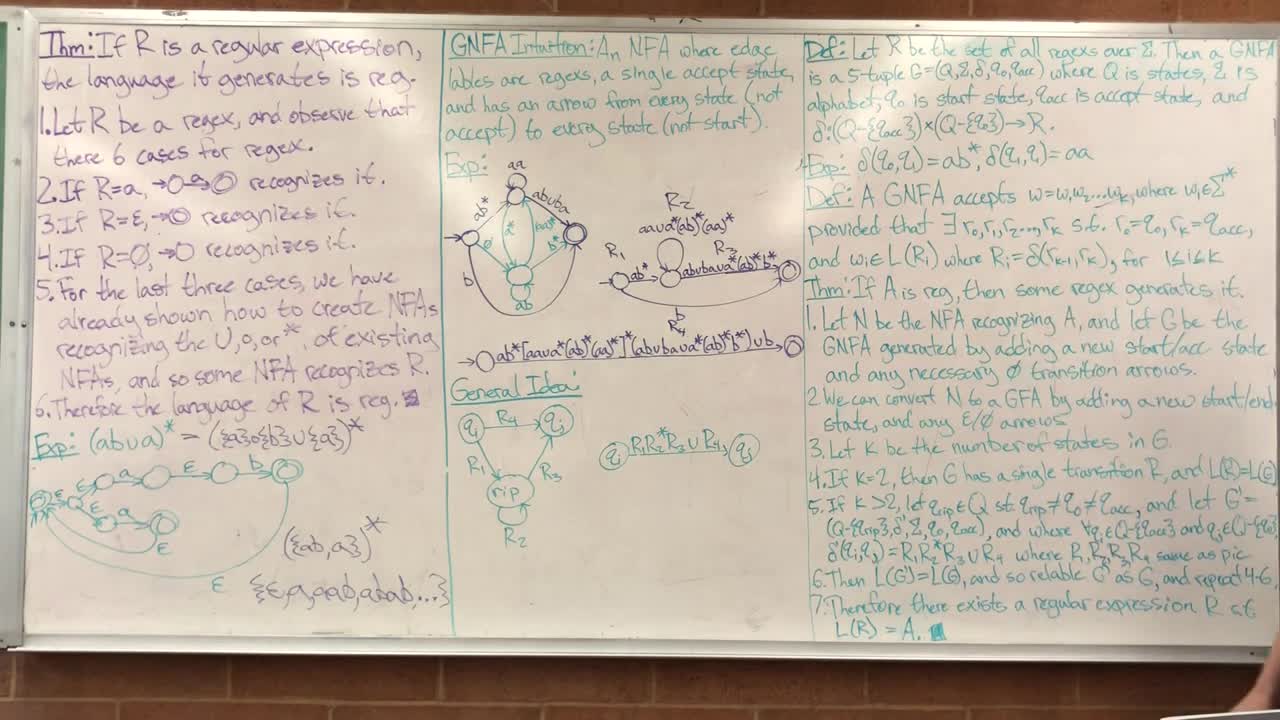 Thm: If R is a regular expression,
the language it generates is reg.
1. Let R be a regex, and observe that
there 6 cases for regex.
2. If R=a, →O-a→◎ recognizes it.
3. If R=ε, →◎ recognizes it.
4. If R=∅, →O recognizes it.
5. For the last three cases, we have
already shown how to create NFAs
recognizing the ∪,o, or *, of existing
NFAs, and so some NFA recognizes R.
6. Therefore the language of R is reg.
Exp: (ab∪a)* = ({a}o{b}∪{a})*
ε
ε
a
ε
b
ε
a
ε
ε
({ab,a})*
{ε,a,aab,abab,...}
GNFA Intuition: An NFA where edge
lables are regexs, a single accept state,
and has an arrow from every state (not
accept) to every state (not start).
Exp:
aa
ab*
ab∪ba
∅
a*
(aa)*
b*
b
ab
R2
aa∪a*(ab)*(aa)*
R1
R3
ab*
ab∪ba∪a*(ab)*b*
b
R4
ab*[aa∪a*(ab)*(aa)*]*(ab∪ba∪a*(ab)*b*]∪b
General Idea:
qi
R4
qj
R1
R3
rip
R2
qi
R1R2*R3∪R4
qj
Def: Let R be the set of all regexs over Σ. Then a GNFA
is a 5-tuple G=(Q,Σ,δ,q0,qacc) where Q is states, Σ is
alphabet, q0 is start state, qacc is accept state, and
δ:(Q-{qacc})×(Q-{q0})→R.
Exp: δ(q0,q1)=ab*, δ(q1,q1)=aa
Def: A GNFA accepts w=w1w2...wk, where wi∈Σ*
provided that ∃ r0,r1,r2...,rk s.t. r0=q0, rk=qacc,
and wi∈L(Ri) where Ri=δ(rk-1,rk), for 1≤i≤k
Thm: If A is reg, then some regex generates it.
1. Let N be the NFA recognizing A, and let G be the
GNFA generated by adding a new start/acc state
and any necessary ∅ transition arrows.
2 We can convert N to a GFA by adding a new start/end
state, and any ε/∅ arrows
3. Let K be the number of states in G.
4. If K=2, then G has a single transition R, and L(R)=L(G)
5. If K>2, let qrip∈Q st. qrip≠q0≠qacc, and let G'=
(Q-{qrip},δ',Σ,q0,qacc), and where ∀qi∈Q-{qacc} and qj∈Q-{q0},
δ'(qi,qj)=R1R2*R3∪R4 where R1,R2,R3,R4 same as pic
6. Then L(G')=L(G), and so relable G' as G, and repeat 4-6
7. Therefore there exists a regular expression R s.t
L(R) = A.